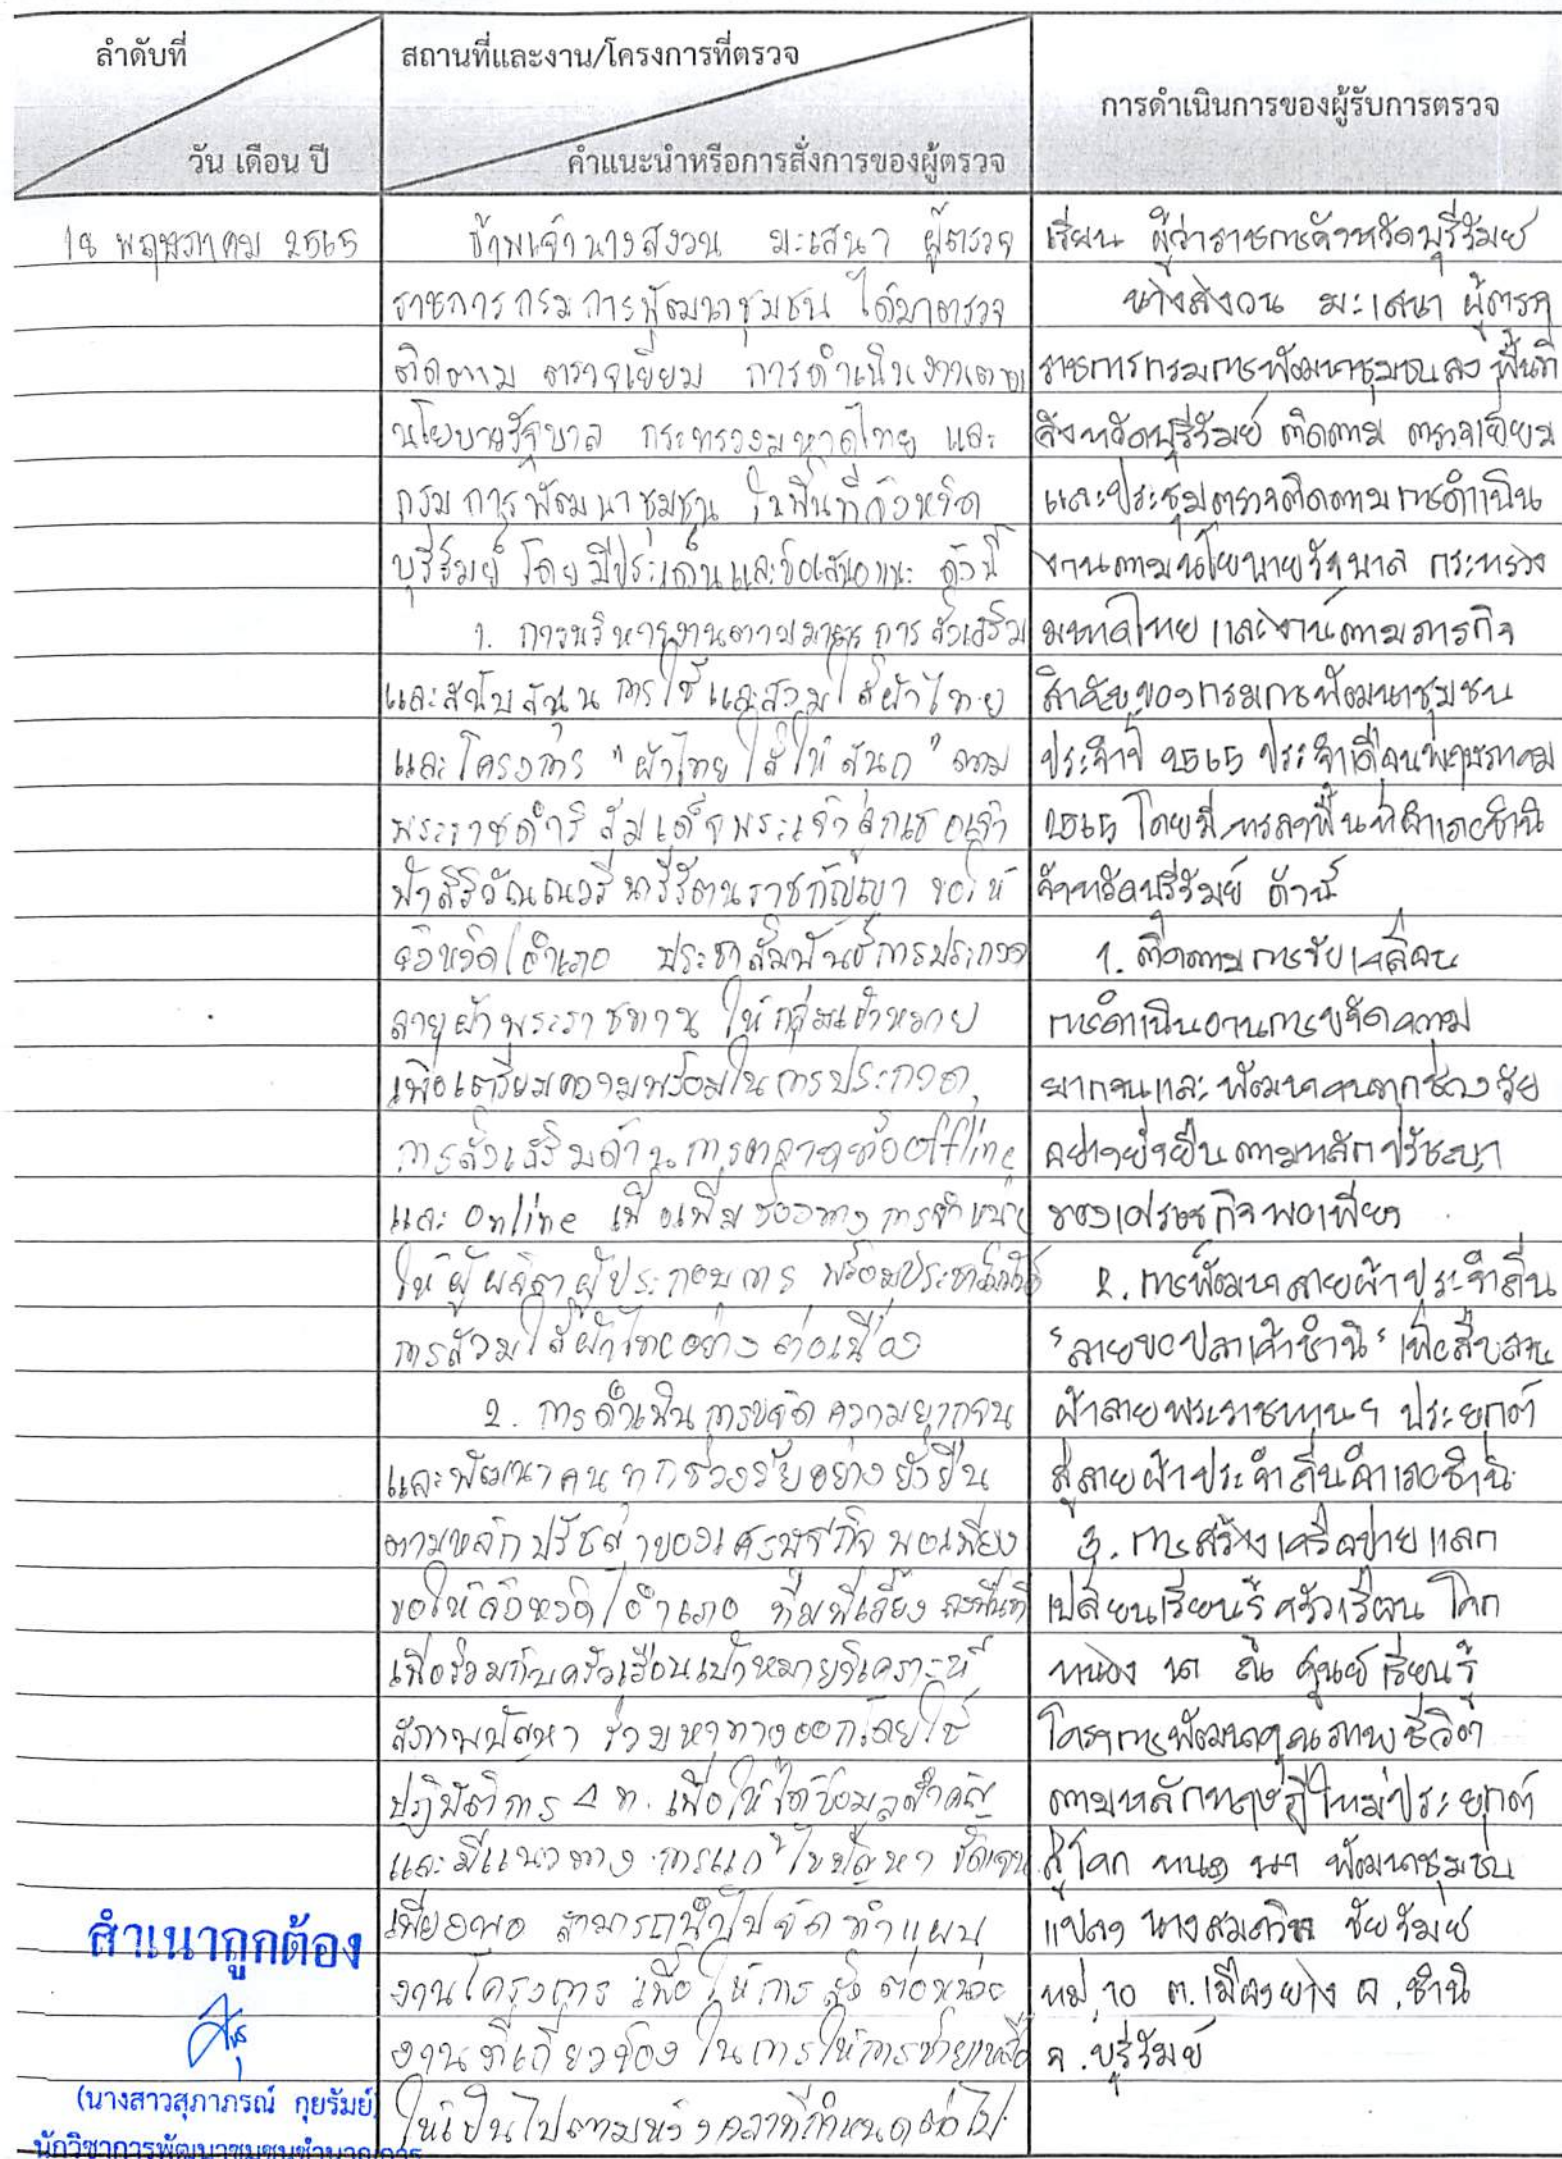 ลำดับที่
วัน เดือน ปี
สถานที่และงาน/โครงการที่ตรวจ
คำแนะนำหรือการสั่งการของผู้ตรวจ
การดำเนินการของผู้รับการตรวจ
18 พฤษภาคม 2565
ข้าพเจ้านางสงวน มะเสนา ผู้ตรวจ
ราชการกรมการพัฒนาชุมชน ได้มาตรวจ
ติดตาม ตรวจเยี่ยม การดำเนินงานตาม
นโยบายรัฐบาล กระทรวงมหาดไทย และ
กรมการพัฒนาชุมชน ในพื้นที่จังหวัด
บุรีรัมย์ โดยมีประเด็นและข้อเสนอแนะ ดังนี้
1. การบริหารงานตามมาตรการส่งเสริม
และสนับสนุนการใช้และสวมใส่ผ้าไทย
และโครงการ "ผ้าไทยใส่ให้สนุก" ตาม
พระราชดำริ สมเด็จพระเจ้าลูกเธอเจ้า
ฟ้าสิริวัณณวรี นารีรัตนราชกัญญา ขอให้
จังหวัด/อำเภอ ประชาสัมพันธ์การประกวด
ลายผ้าพระราชทาน ให้กลุ่มเป้าหมาย
เพื่อเตรียมความพร้อมในการประกวด,
การส่งเสริมด้านการตลาดทั้ง offline
และ online เพื่อเพิ่มช่องทางการจำหน่าย
ให้ผู้ผลิตผู้ประกอบการ พร้อมประชาสัมพันธ์
การสวมใส่ผ้าไทยอย่างต่อเนื่อง
2. การดำเนินการขจัดความยากจน
และพัฒนาคนทุกช่วงวัยอย่างยั่งยืน
ตามหลักปรัชญาของเศรษฐกิจพอเพียง
ขอให้จังหวัด/อำเภอ ทีมพี่เลี้ยง ลงพื้นที่
เพื่อร่วมกับครัวเรือนเป้าหมายวิเคราะห์
สภาพปัญหา ร่วมหาทางออกโดยใช้
ปฏิบัติการ 4 ท. เพื่อให้ได้ข้อมูล
และมีแนวทางการแก้ไขปัญหา ชัดเจน
เพียงพอ สามารถนำไปจัดทำแผน
งานโครงการ เพื่อให้การส่งต่อหน่วย
งานที่เกี่ยวข้อง ในการให้การช่วยเหลือ
ให้เป็นไปตามห้วงเวลาที่กำหนดต่อไป
เรียน ผู้ว่าราชการจังหวัดบุรีรัมย์
นางสงวน มะเสนา ผู้ตรวจ
ราชการกรมการพัฒนาชุมชนลงพื้นที่
จังหวัดบุรีรัมย์ ติดตาม ตรวจเยี่ยม
และประชุมตรวจติดตามการดำเนิน
งานตามนโยบายรัฐบาล กระทรวง
มหาดไทย และงานตามภารกิจ
สำคัญของกรมการพัฒนาชุมชน
ประจำปี 2565 ประจำเดือนพฤษภาคม
2565 โดยมีการลงพื้นที่อำเภอชำนิ
จังหวัดบุรีรัมย์ ดังนี้
1. ติดตามการขับเคลื่อน
การดำเนินงานการขจัดความ
ยากจนและพัฒนาคนทุกช่วงวัย
อย่างยั่งยืนตามหลักปรัชญา
ของเศรษฐกิจพอเพียง
2. การพัฒนาลายผ้าประจำถิ่น
"ลายขอปลาเค้าชำนิ" เพื่อสืบสาน
ผ้าลายพระราชทานฯ ประยุกต์
สู่ลายผ้าประจำถิ่นอำเภอชำนิ
3. การสร้างเครือข่ายแลก
เปลี่ยนเรียนรู้ ครัวเรือน โคก
หนอง นา ณ ศูนย์เรียนรู้
โครงการพัฒนาคุณภาพชีวิต
ตามหลักทฤษฎีใหม่ประยุกต์
สู่โคก หนอง นา พัฒนาชุมชน
แปลง นางสมถวิล ชัยรัมย์
หมู่ 10 ต.เมืองยาง อ.ชำนิ
จ.บุรีรัมย์
สำเนาถูกต้อง
(นางสาวสุภาภรณ์ กุยรัมย์)
นักวิชาการพัฒนาชุมชนชำนาญการ